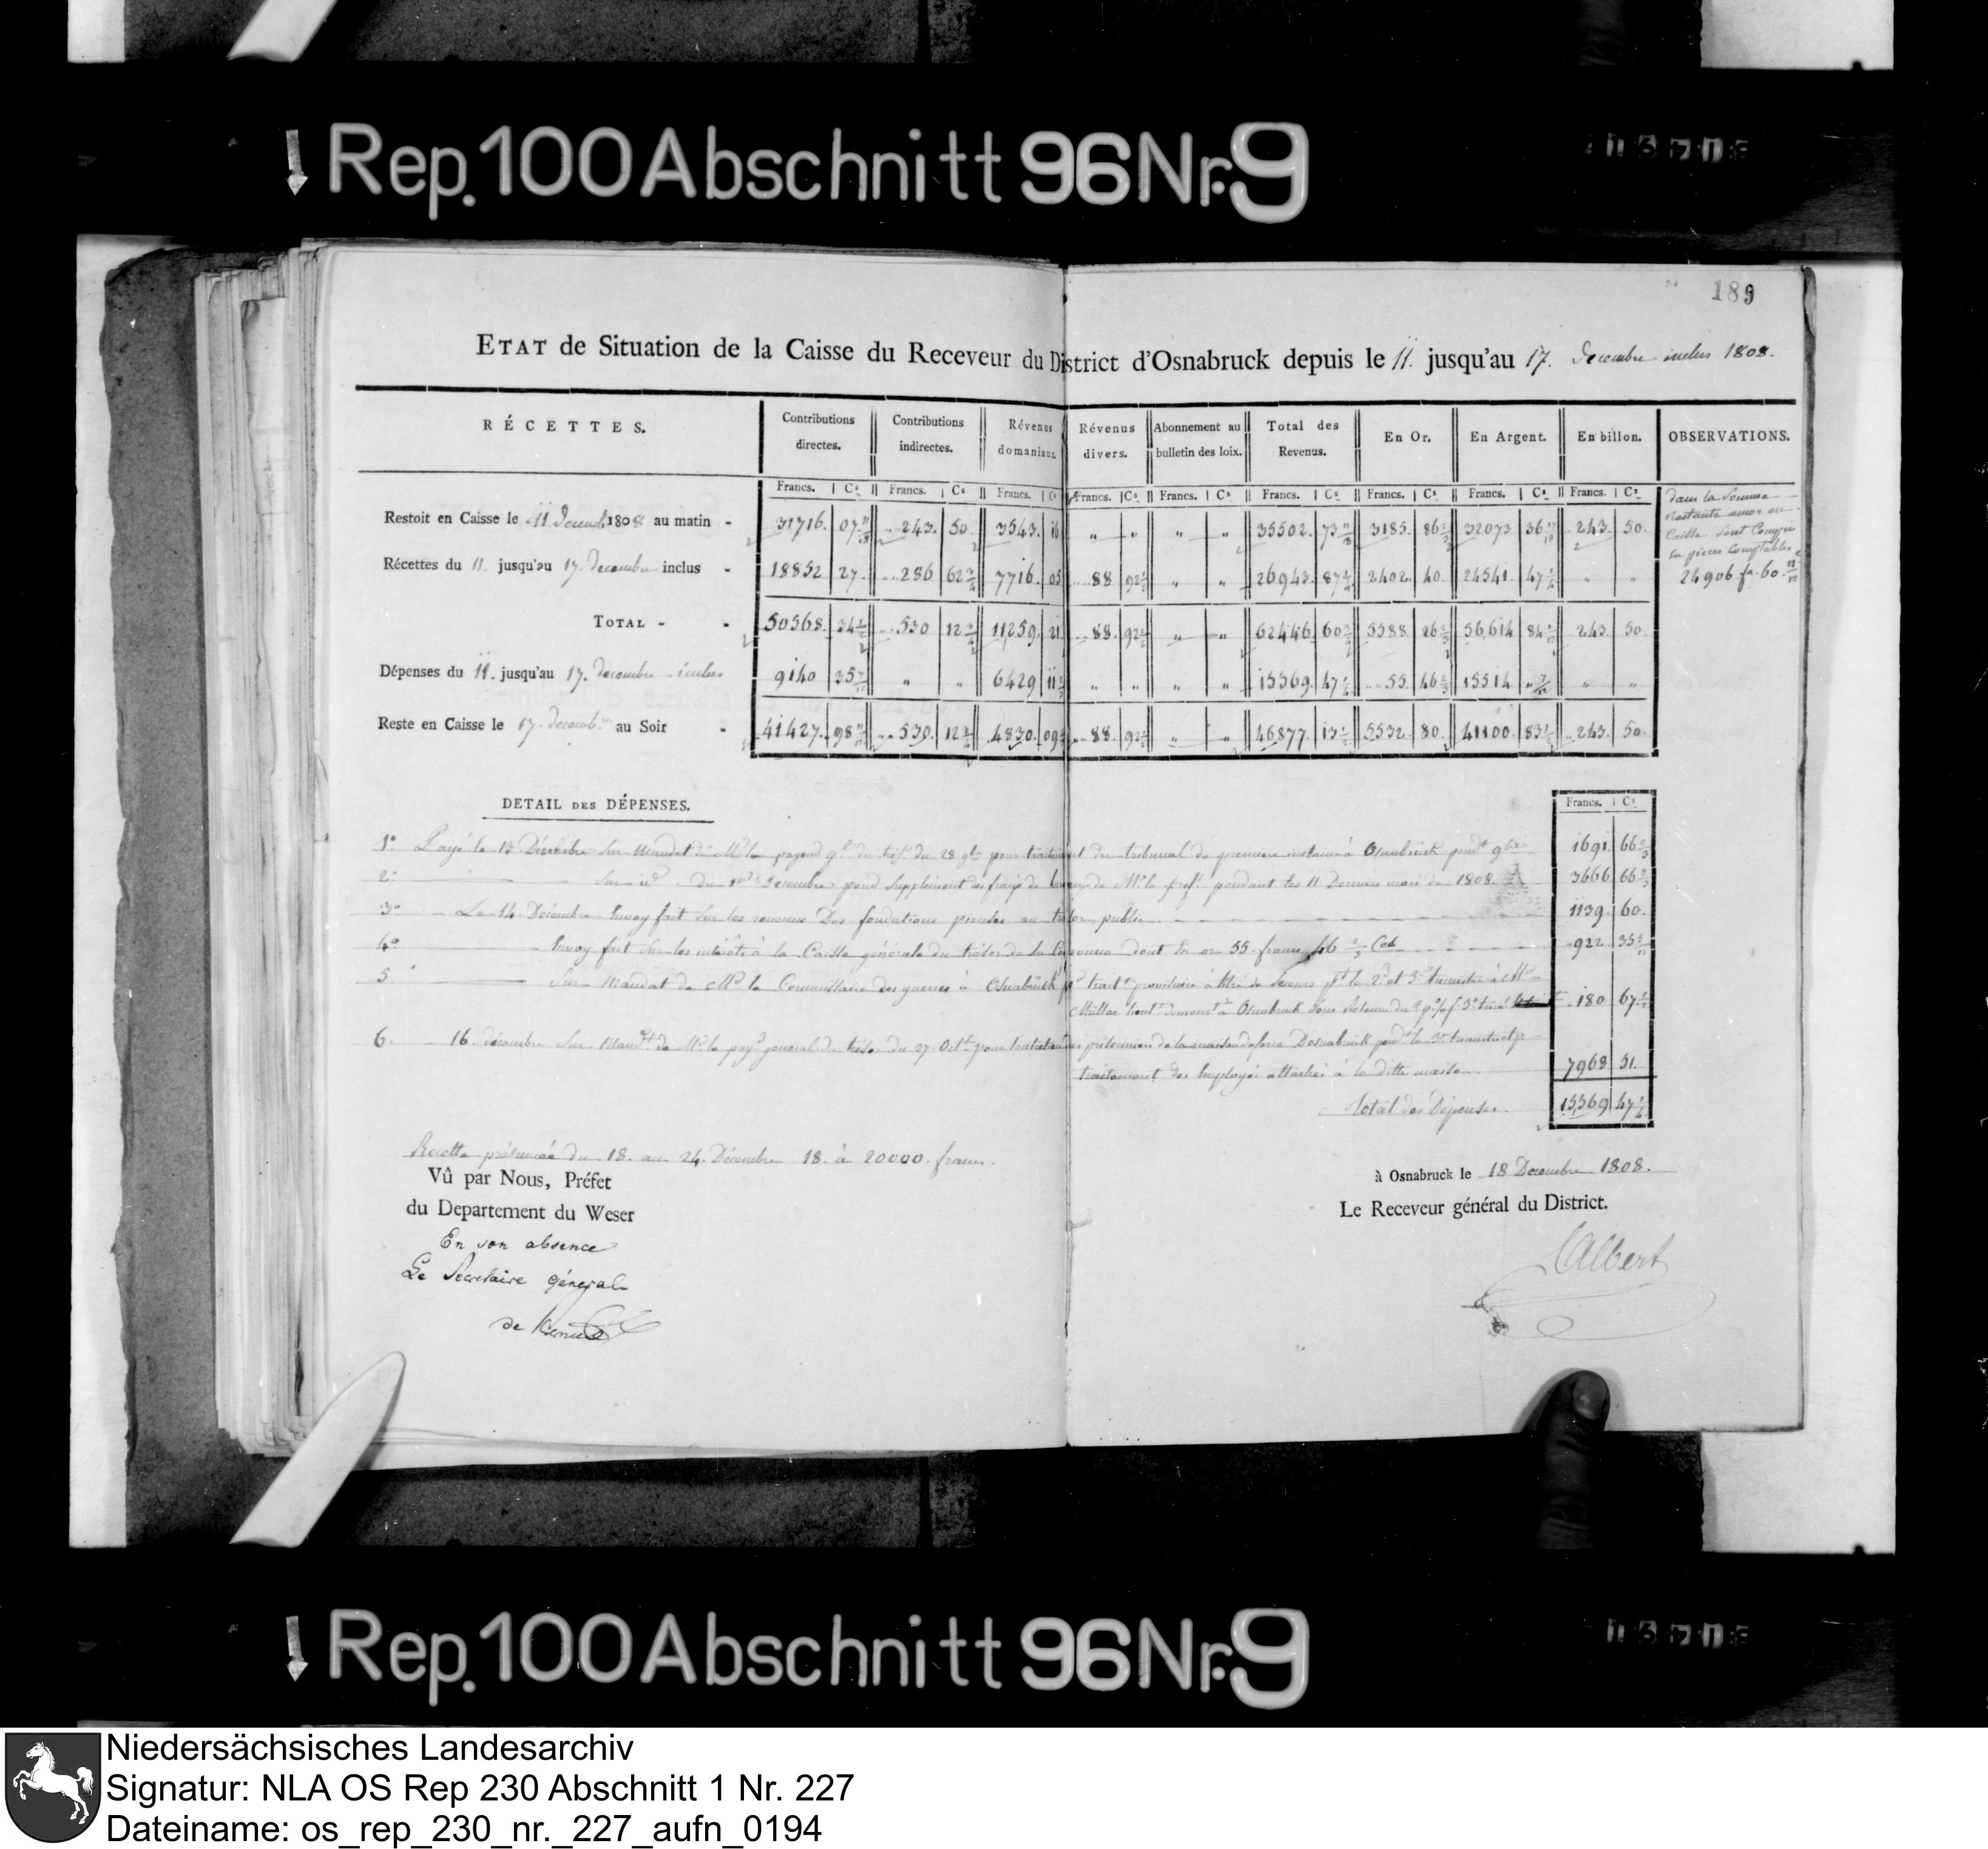 ↓ Rep. 100 Abschnitt 96 Nr. 9
189
ETAT de Situation de la Caisse du Receveur du District d'Osnabruck depuis le 11. jusqu'au 17. Decembre inclus 1808.
RÉCETTES. Contributions directes. Contributions indirectes. Révenus domaniaux. Révenus divers. Abonnement au bulletin des loix. Total des Revenus. En Or. En Argent. En billon. OBSERVATIONS.
Francs. Cs Francs. Cs Francs. Cs Francs. Cs Francs. Cs Francs. Cs Francs. Cs Francs. Cs Francs. Cs
Restoit en Caisse le 11 Decemb. 1808 au matin - 31716. 07 243. 50 3543. 16 " " " " 35502. 73 3185. 86 32073 36 243. 50. dans la Somme restante en Caisse sont Compris en pieces Comptables
Récettes du 11. jusqu'au 17. decembre inclus - 18852 27. 286 62 7716. 05 88. 92 " " 26943. 87 2402. 40. 24541. 47 " " 24906. fr. 60.
TOTAL - - 50568. 34 530 12 11,259. 21 88. 92 " " 62446 60 5588. 26 56,614 84 243. 50.
Dépenses du 11. jusqu'au 17. decembre inclus 9140 35 " " 6429 11 " " " " 15569. 47 55. 46 15514. " " "
Reste en Caisse le 17. decemb. au Soir - 41427. 98 530. 12 4830. 09 88. 92 " " 46877. 13 5532. 80. 41100. 83 243. 50.
DETAIL DES DÉPENSES. Francs. Cs
1° Payé le 13 Décembre sur Mandat de Mr le payeur du 28 pour traitement du tribunal de premiere instance à Osnabrück 1691. 66 2/3
2° Sur decembre Supplément des frais de bureau de Mr le pref. pendant les 11 Derniers mois de 1808. 3666 66 2/3
3° Le 14 Décembre Envoy fait Sur les revenus Des fondations pieuses au tresor public 1139. 60.
4° Envoy fait Sur les intérêts à la Caisse générale du trésor de la dont En or 55. francs 46 2/3 Cet 922 35
5° Sur Mandat de Mr le Commissaire des guerres à Osnabrück provisoire à titre de Secours le 2e et 3e trimestre à Mr
Müller à Osnabruck 180 67
6. 16 décembre Sur Mandt de Mr le pay. general du trésor du 27. Oct. pour prisonniers de la maison de force D'osnabrück le 3e trimestre et pr
traitement des Employés attachés à la ditte maison 7968 51.
Total des Dépenses. 15,569 47
Recette présumée du 18. au 24. Décembre 18. à 20000. francs.
Vû par Nous, Préfet
du Departement du Weser
En son absence
Le Secrétaire général
de
à Osnabruck le 18 Decembre 1808.
Le Receveur général du District.
Albert
↓ Rep. 100 Abschnitt 96 Nr. 9
Niedersächsisches Landesarchiv
Signatur: NLA OS Rep 230 Abschnitt 1 Nr. 227
Dateiname: os_rep_230_nr._227_aufn_0194